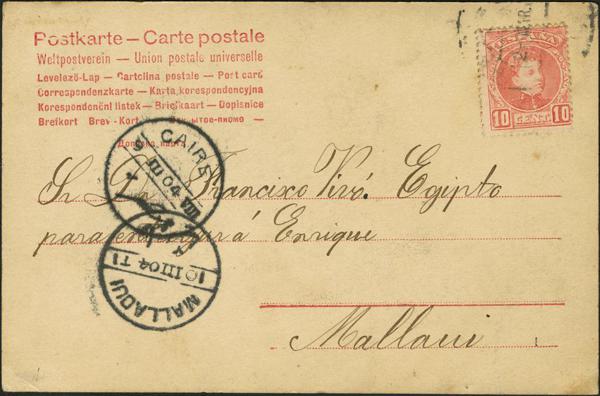 Postkarte — Carte postale
Weltpostverein — Union postale universelle
Levelező-Lap — Cartolina postale — Port card
Correspondenzkarte — Karta korespondencyjna
Korespondenční lístek — Briefkaart — Dopisnice
Brefkort Brev-Kort
ESPAÑA
10 CENT. 10
CAIRE
9 III 04 VIII
Sr Dn Francisco Vivó. Egipto
para entregar á Enrique
10 III 04 T1
MALLAOUI
Mallaui